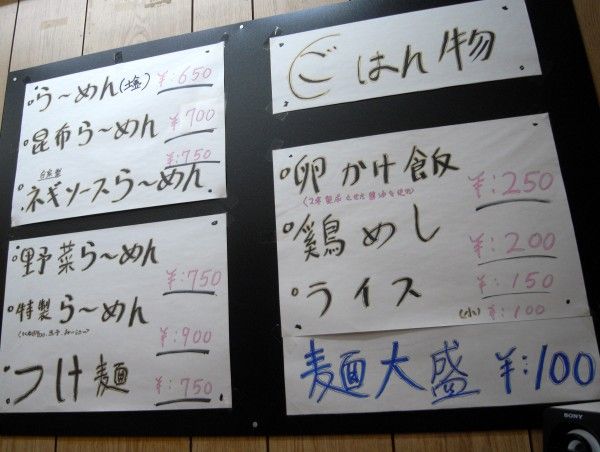 ら〜めん(塩) ¥:650
昆布ら〜めん ¥700
自家製 ¥:750
ネギソースら〜めん
野菜ら〜めん ¥:750
特製ら〜めん
¥:900
つけ麺 ¥:750
ごはん物
卵かけ飯 ¥:250
鶏めし ¥:200
ライス ¥:150
(小) ¥:100
麺大盛 ¥:100
SONY